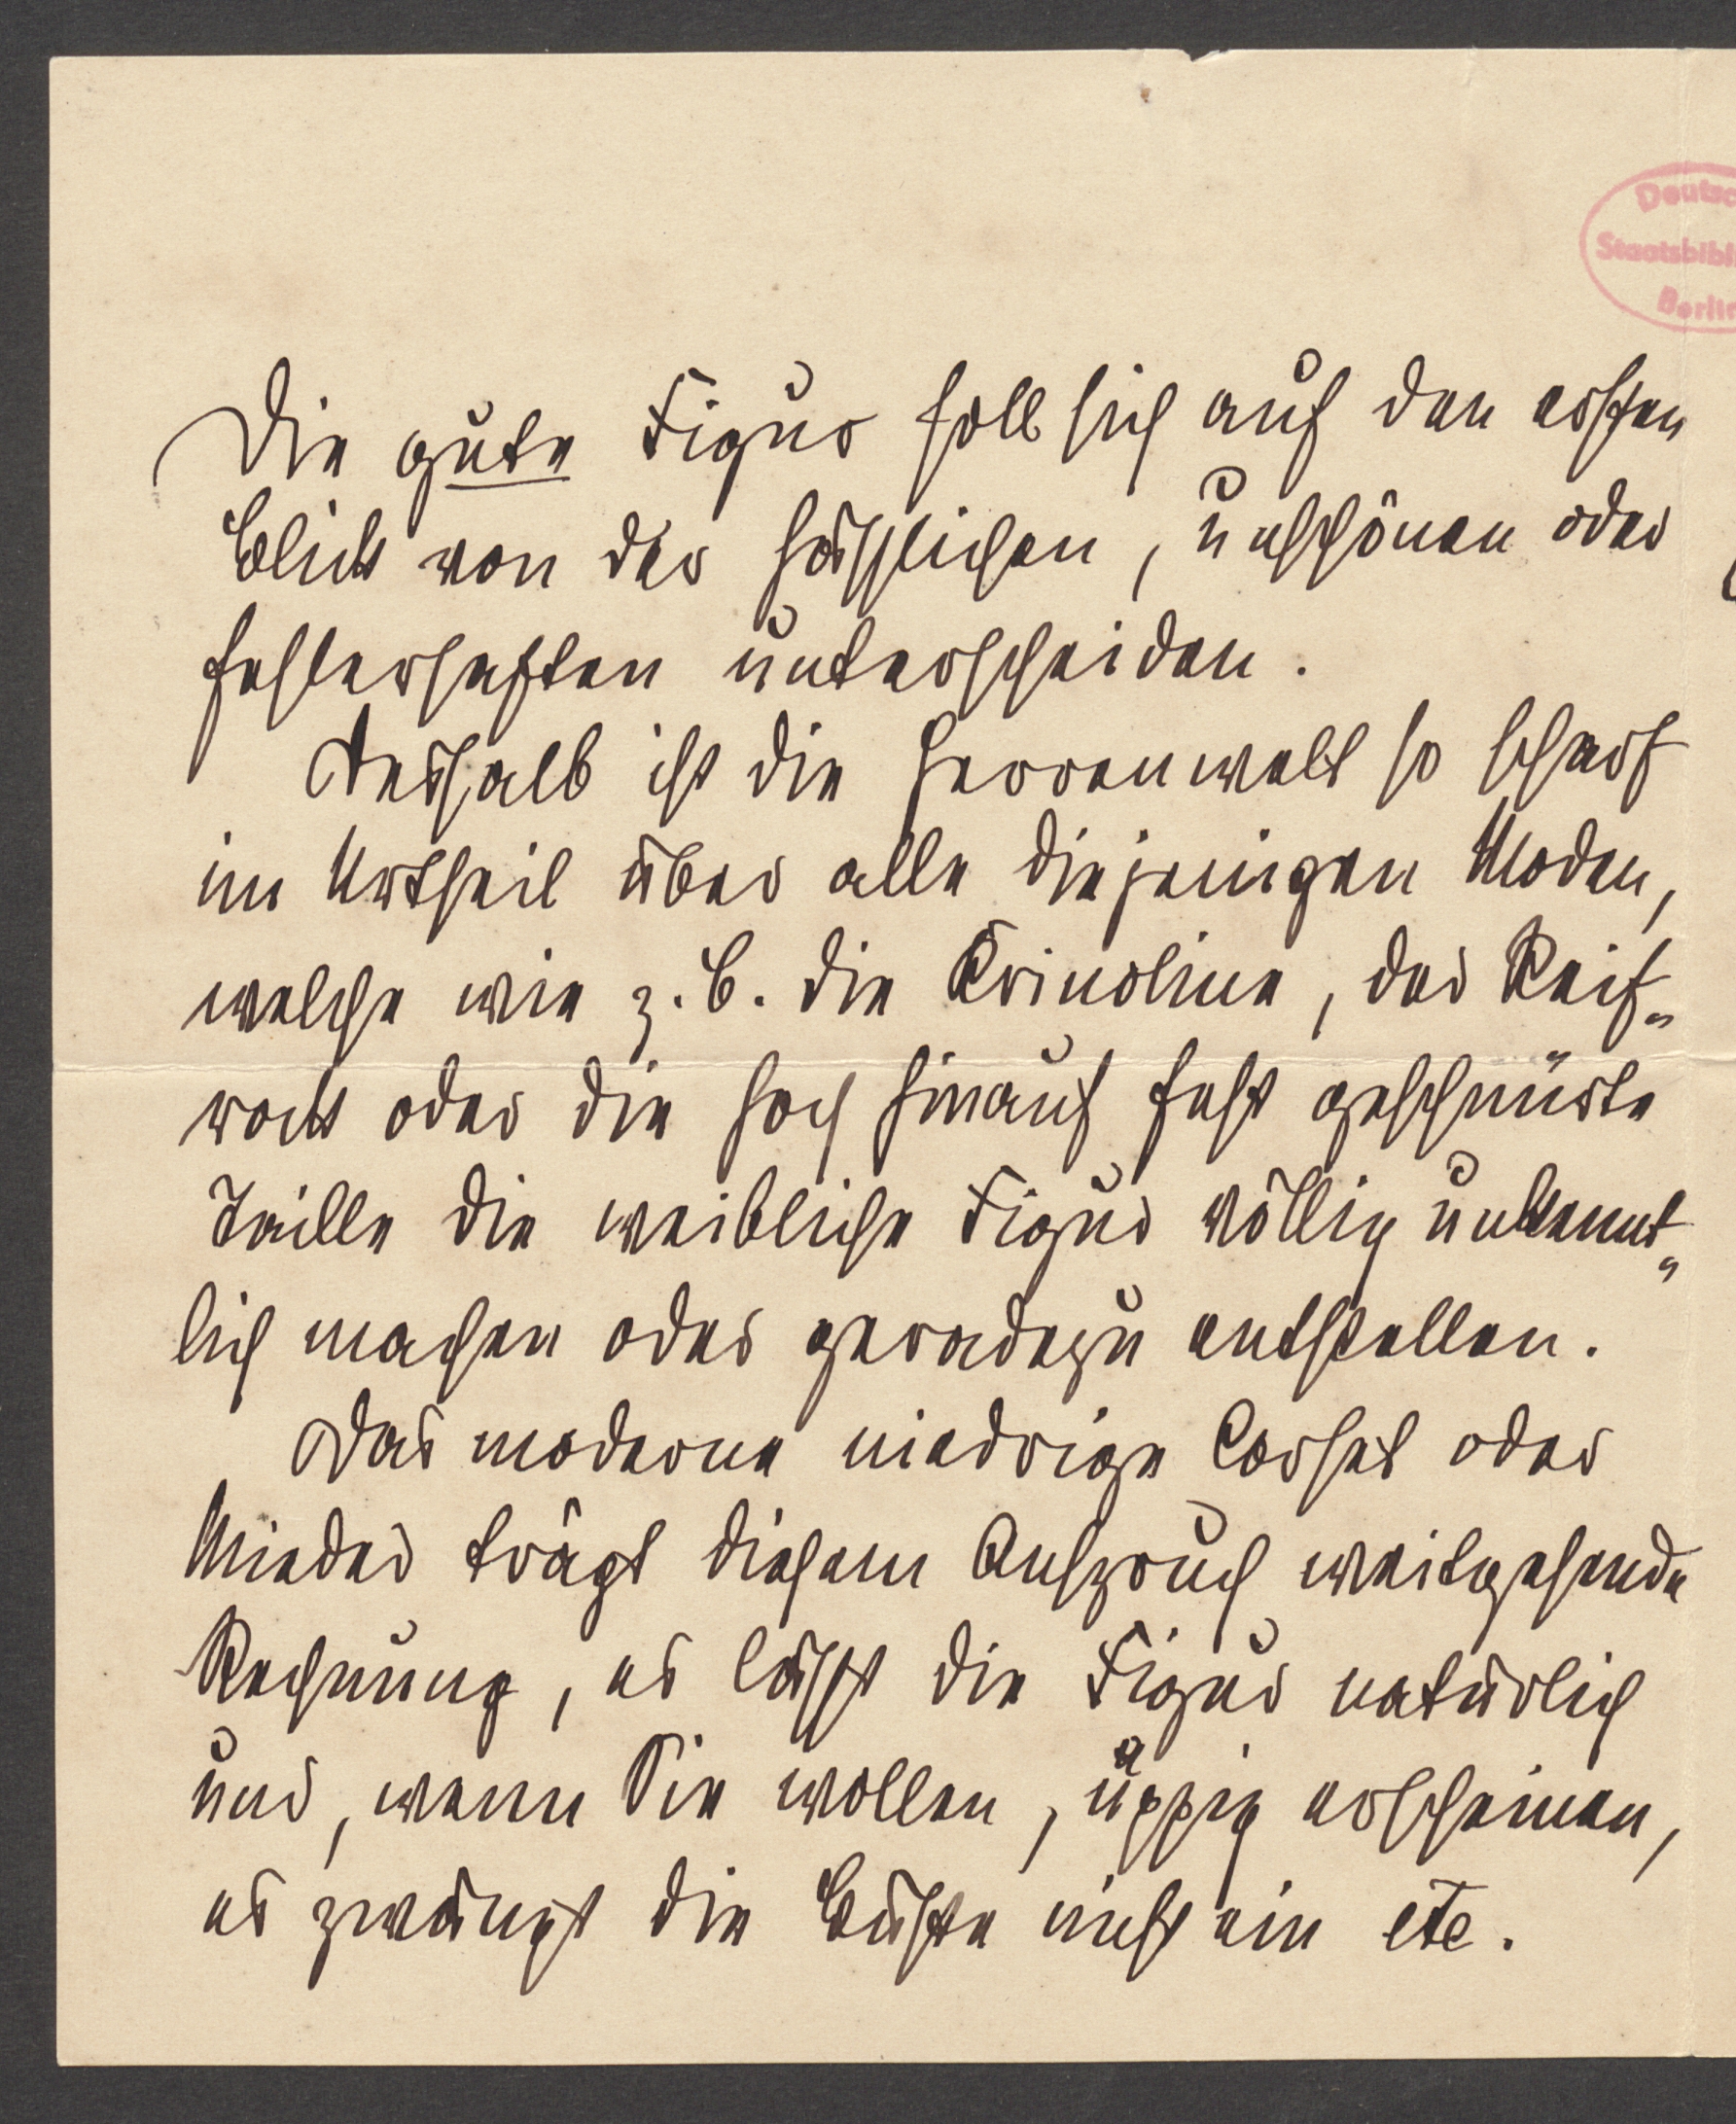 Deutsc
Staatsbibli
Berlin
Die gute Figur soll sich auf den ersten
Blick von der hässlichen, unschönen oder
fehlerhaften unterscheiden.
Deshalb ist die Herrenwelt so scharf
im Urtheil über alle diejenigen Moden,
welche wie z. B. die Krinoline, der Reif-
rock oder die hoch hinauf fest geschnürte
Taille die weibliche Figur völlig unkennt-
lich machen oder geradezu entstellen.
Das moderne niedrige Corset oder
Mieder trägt diesem Anspruch weitgehende
Rechnung, es lässt die Figur natürlich
und, wenn Sie wollen, üppig erscheinen,
es zwängt die Büste nicht ein etc.